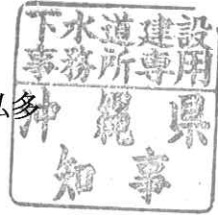 下水道建設
事務所専用
多
沖縄県
知事